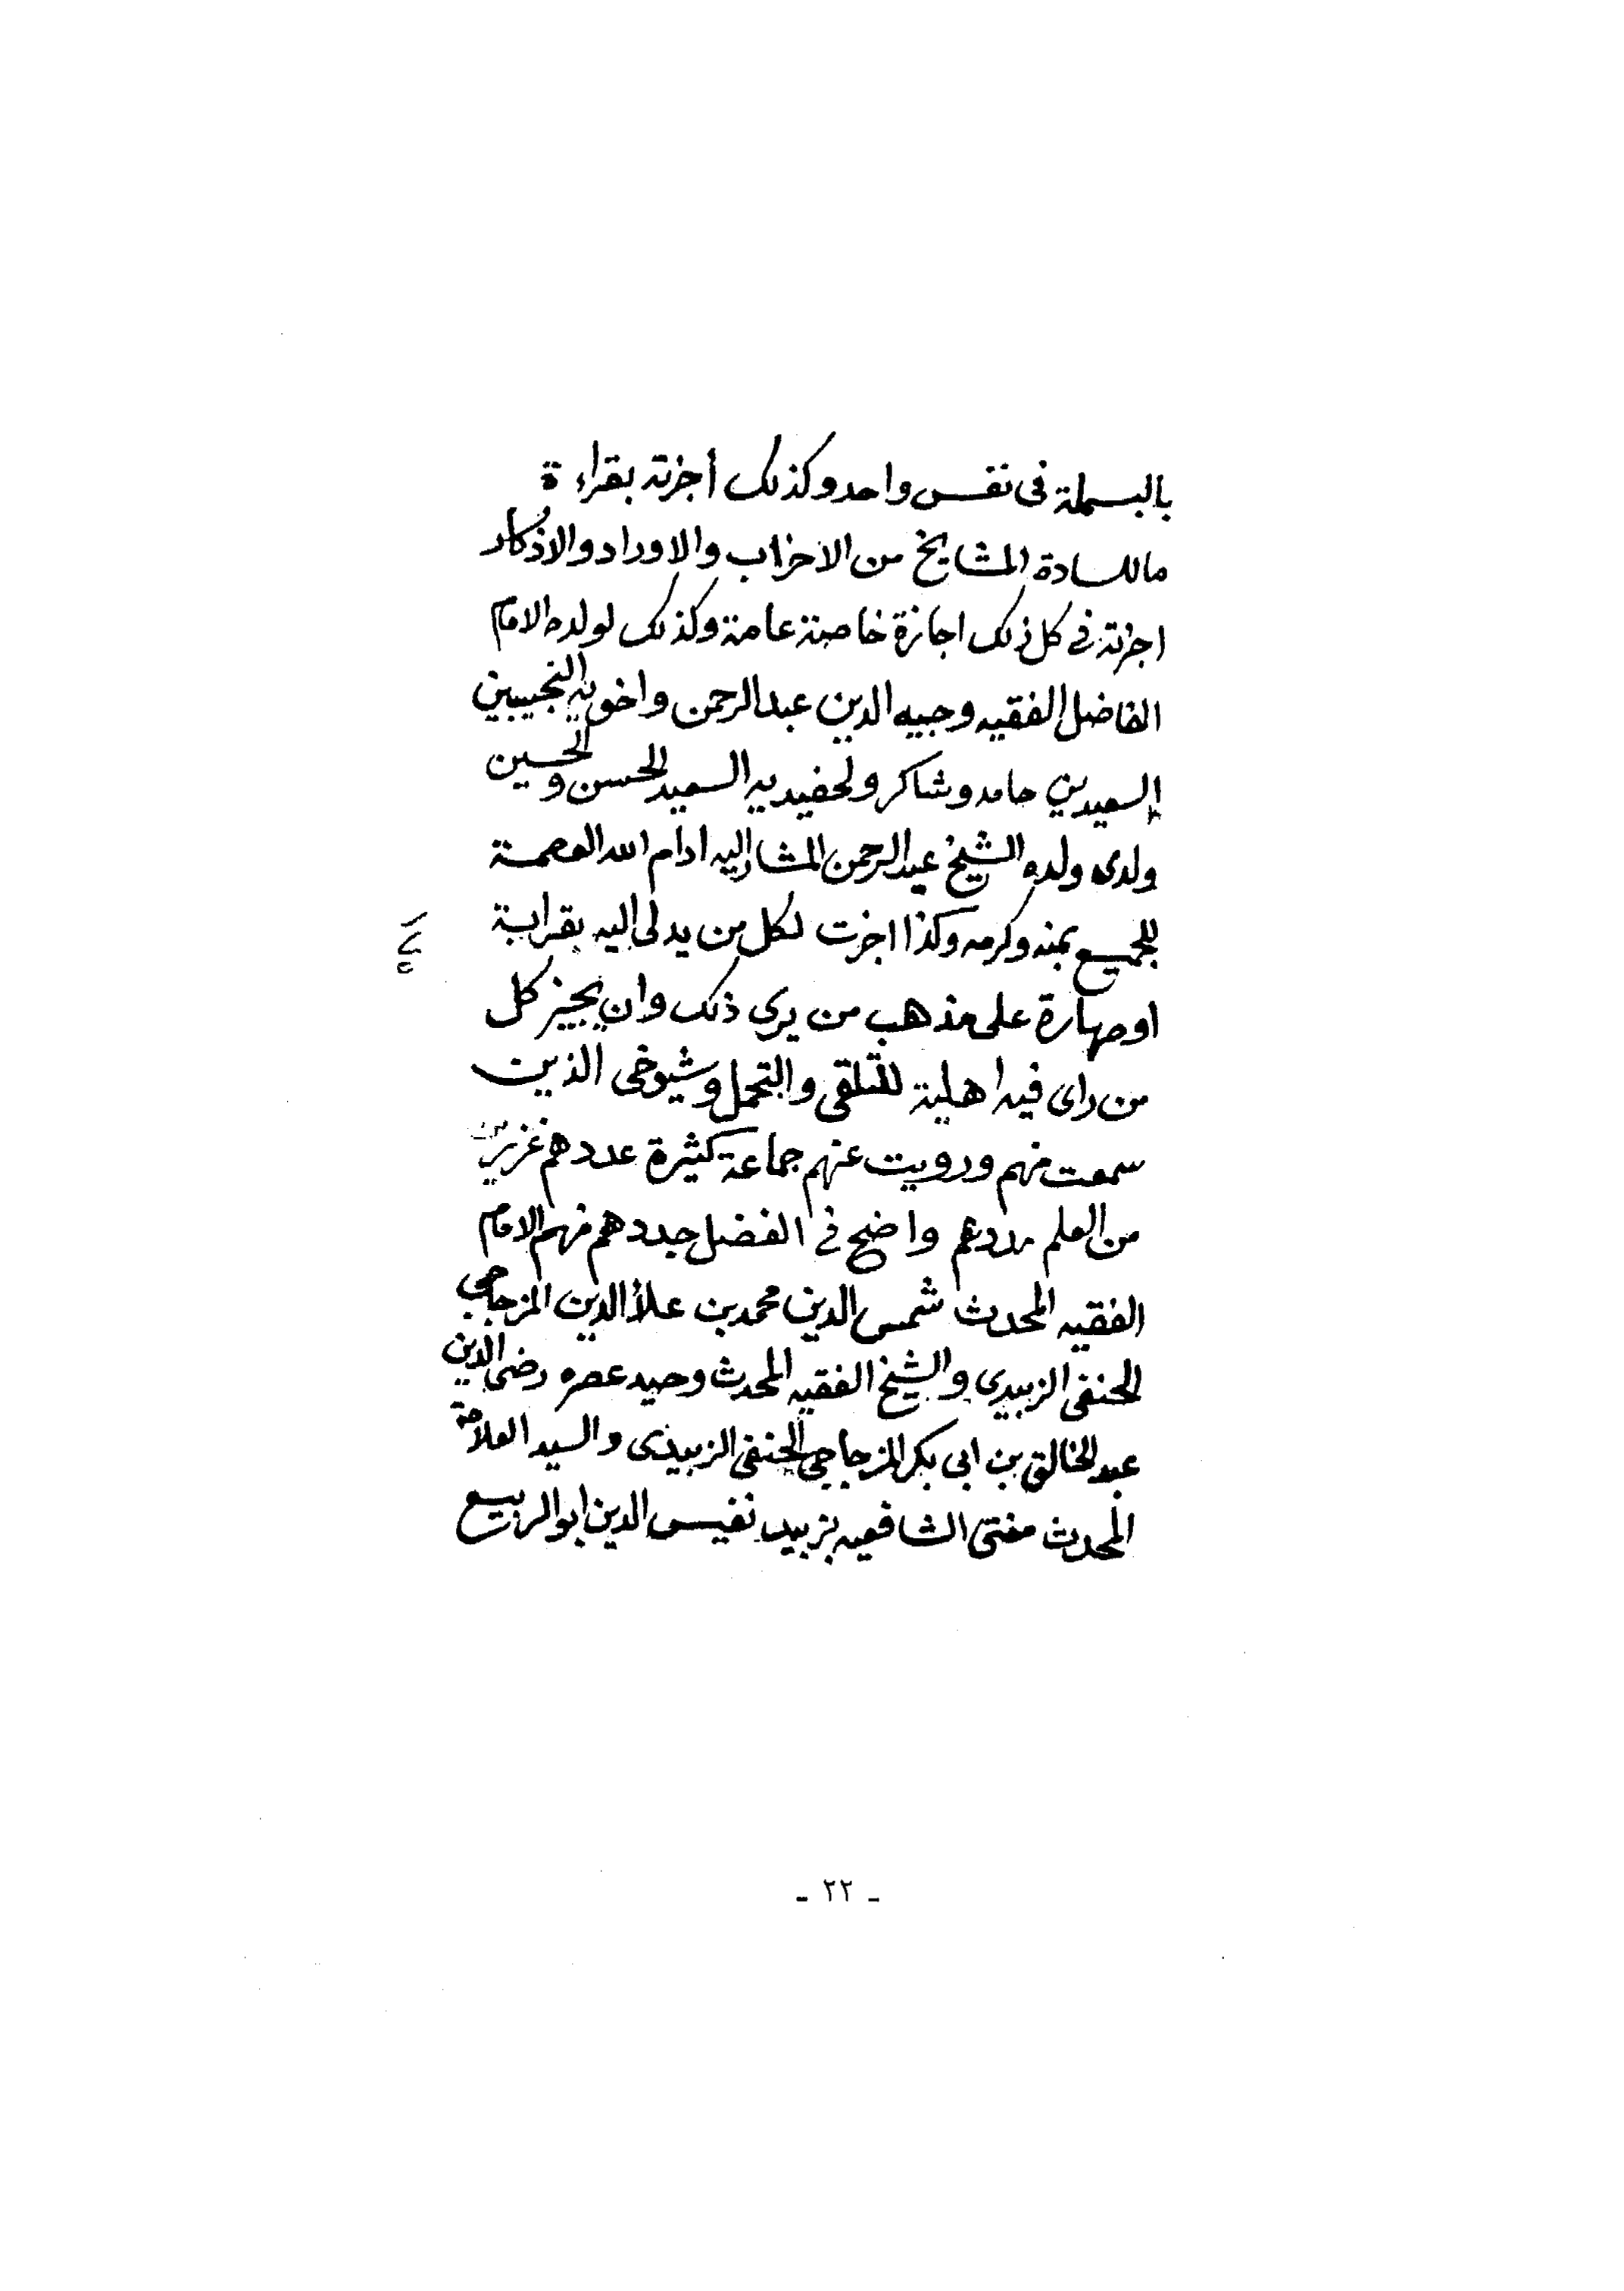 بالبسملة فى نفس واحد وكذلك أجزته بقراءة
ما للسادة المشايخ من الاحزاب والاوراد والاذكار
اجزته في كل ذلك اجازة خاصة عامة وكذلك لولده الامام
الفاضل الفقيه وجيه الدين عبد الرحمن واخويه النجيبين
السعيدين حامد وشاكر ولحفيديه السعيد الحسن والحسين
ولدى ولده الشيخ عبد الرحمن المشار اليه ادام الله العصمة
للجميع بمنه وكرمه وكذا اجزت لكل من يدلى اليه بقرابة
او صهارة على مذهب من يرى ذلك وان يجيز كل
من راى فيه اهلية للتلقى والتحمل وشيوخى الذين
سمعت منهم ورويت عنهم جماعة كثيرة عددهم غزير
من العلم مددهم واضح في الفضل جددهم منهم الامام
الفقيه المحدث شمس الدين محمد بن علاء الدين المزجاجى
الحنفى الزبيدى والشيخ الفقيه المحدث وحيد عصره رضى الدين
عبد الخالق بن ابى بكر المزجاجى الحنفى الزبيدى والسيد العلامة
المحدث مفتى الشافعيه بزبيد نفيس الدين ابو الربيع
- ٢٢ -